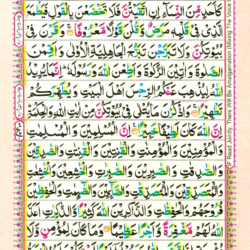 كَاَحَدٍ مِّنَ النِّسَآءِ اِنِ اتَّقَيْتُنَّ فَلَا تَخْضَعْنَ بِالْقَوْلِ فَيَطْمَعَ
الَّذِىْ فِىْ قَلْبِهٖ مَرَضٌ وَّقُلْنَ قَوْلًا مَّعْرُوْفًا وَقَرْنَ فِىْ
بُيُوْتِكُنَّ وَلَا تَبَرَّجْنَ تَبَرُّجَ الْجَاهِلِيَّةِ الْاُوْلٰى وَاَقِمْنَ
الصَّلٰوةَ وَاٰتِيْنَ الزَّكٰوةَ وَاَطِعْنَ اللّٰهَ وَرَسُوْلَهٗ اِنَّمَا يُرِيْدُ
اللّٰهُ لِيُذْهِبَ عَنْكُمُ الرِّجْسَ اَهْلَ الْبَيْتِ وَيُطَهِّرَكُمْ
تَطْهِيْرًا وَاذْكُرْنَ مَا يُتْلٰى فِىْ بُيُوْتِكُنَّ مِنْ اٰيٰتِ اللّٰهِ وَالْحِكْمَةِ
اِنَّ اللّٰهَ كَانَ لَطِيْفًا خَبِيْرًا اِنَّ الْمُسْلِمِيْنَ وَالْمُسْلِمٰتِ
وَالْمُؤْمِنِيْنَ وَالْمُؤْمِنٰتِ وَالْقٰنِتِيْنَ وَالْقٰنِتٰتِ وَالصّٰدِقِيْنَ
وَالصّٰدِقٰتِ وَالصّٰبِرِيْنَ وَالصّٰبِرٰتِ وَالْخٰشِعِيْنَ وَالْخٰشِعٰتِ
وَالْمُتَصَدِّقِيْنَ وَالْمُتَصَدِّقٰتِ وَالصَّآئِمِيْنَ وَالصّٰٓئِمٰتِ وَالْحٰفِظِيْنَ
فُرُوْجَهُمْ وَالْحٰفِظٰتِ وَالذّٰكِرِيْنَ اللّٰهَ كَثِيْرًا وَّالذّٰكِرٰتِ اَعَدَّ
اللّٰهُ لَهُمْ مَّغْفِرَةً وَّاَجْرًا عَظِيْمًا وَمَا كَانَ لِمُؤْمِنٍ وَّلَا
F Read Jointly, There Will Be Amalgamation (Mixing The